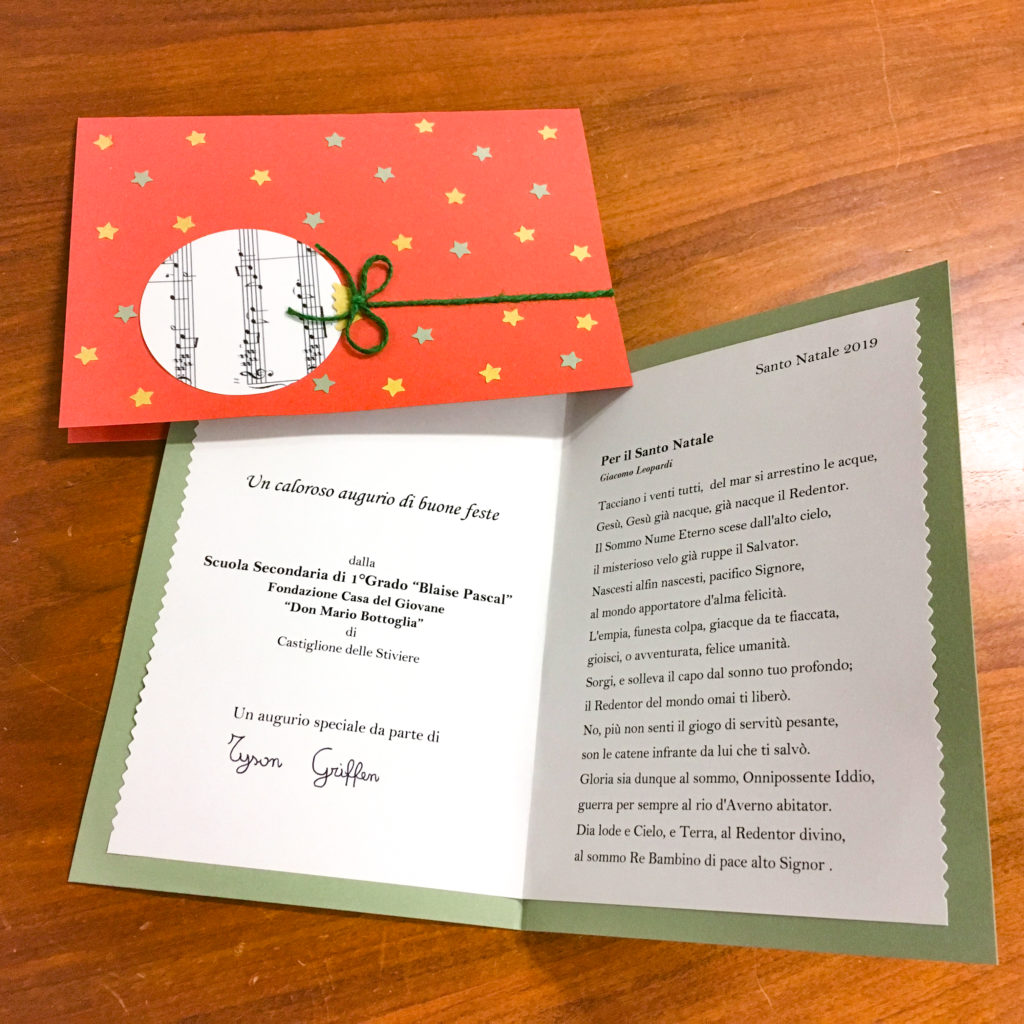 Un caloroso augurio di buone feste
dalla
Scuola Secondaria di 1°Grado “Blaise Pascal”
Fondazione Casa del Giovane
“Don Mario Bottoglia”
di
Castiglione delle Stiviere
Un augurio speciale da parte di
Tyson Griffen
Santo Natale 2019
Per il Santo Natale
Giacomo Leopardi
Tacciano i venti tutti, del mar si arrestino le acque,
Gesù, Gesù già nacque, già nacque il Redentor.
Il Sommo Nume Eterno scese dall'alto cielo,
il misterioso velo già ruppe il Salvator.
Nascesti alfin nascesti, pacifico Signore,
al mondo apportatore d'alma felicità.
L'empia, funesta colpa, giacque da te fiaccata,
gioisci, o avventurata, felice umanità.
Sorgi, e solleva il capo dal sonno tuo profondo;
il Redentor del mondo omai ti liberò.
No, più non senti il giogo di servitù pesante,
son le catene infrante da lui che ti salvò.
Gloria sia dunque al sommo, Onnipossente Iddio,
guerra per sempre al rio d'Averno abitator.
Dia lode e Cielo, e Terra, al Redentor divino,
al sommo Re Bambino di pace alto Signor .